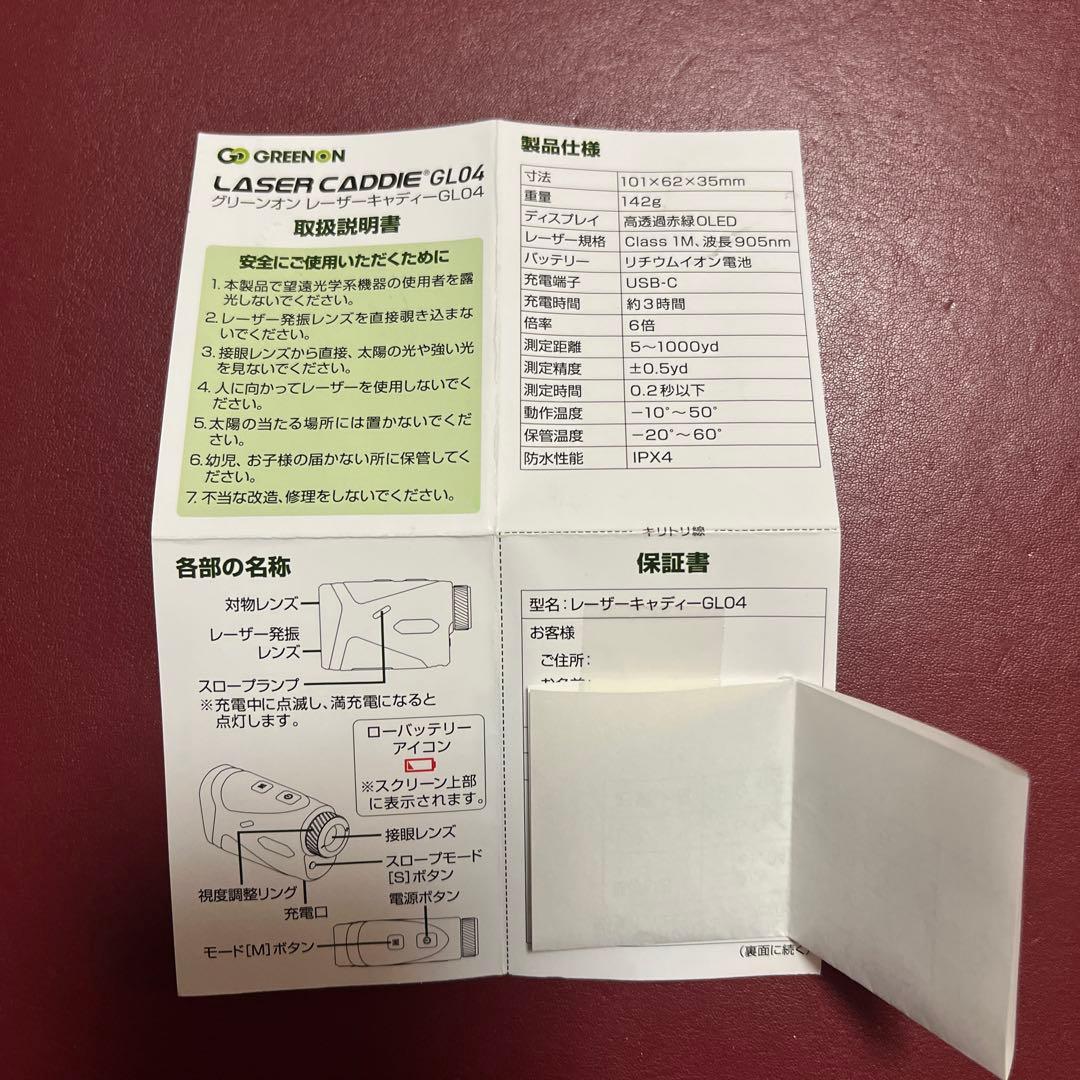 GREENON
LASER CADDIE® GL04
グリーンオン レーザーキャディーGL04
取扱説明書
安全にご使用いただくために
1. 本製品で望遠光学系機器の使用者を露
光しないでください。
2. レーザー発振レンズを直接覗き込まな
いでください。
3. 接眼レンズから直接、太陽の光や強い光
を見ないでください。
4. 人に向かってレーザーを使用しないでく
ださい。
5. 太陽の当たる場所には置かないでくだ
さい。
6. 幼児、お子様の届かない所に保管してく
ださい。
7. 不当な改造、修理をしないでください。
製品仕様
寸法 101×62×35mm
重量 142g
ディスプレイ 高透過赤緑OLED
レーザー規格 Class 1M、波長905nm
バッテリー リチウムイオン電池
充電端子 USB-C
充電時間 約3時間
倍率 6倍
測定距離 5〜1000yd
測定精度 ±0.5yd
測定時間 0.2秒以下
動作温度 −10°〜50°
保管温度 −20°〜60°
防水性能 IPX4
各部の名称
対物レンズ
レーザー発振
レンズ
スロープランプ
※充電中に点滅し、満充電になると
点灯します。
ローバッテリー
アイコン
※スクリーン上部
に表示されます。
接眼レンズ
スロープモード
[S]ボタン
視度調整リング
充電口
電源ボタン
モード[M]ボタン
キリトリ線
保証書
型名：レーザーキャディーGL04
お客様
ご住所：
(裏面に続く)